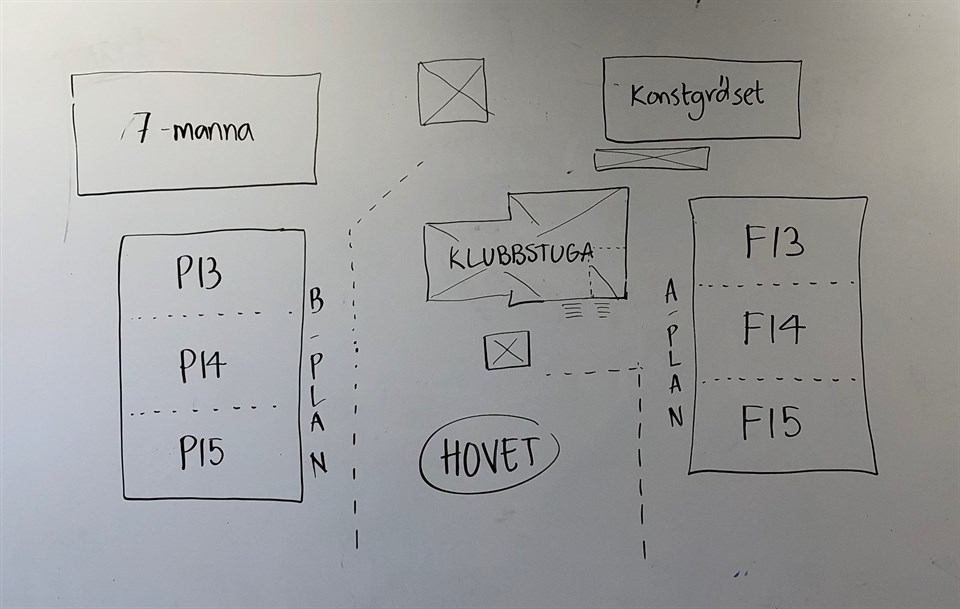 7-manna
Konstgräset
KLUBBSTUGA
P13
P14
P15
B-PLAN
A-PLAN
F13
F14
F15
HOVET